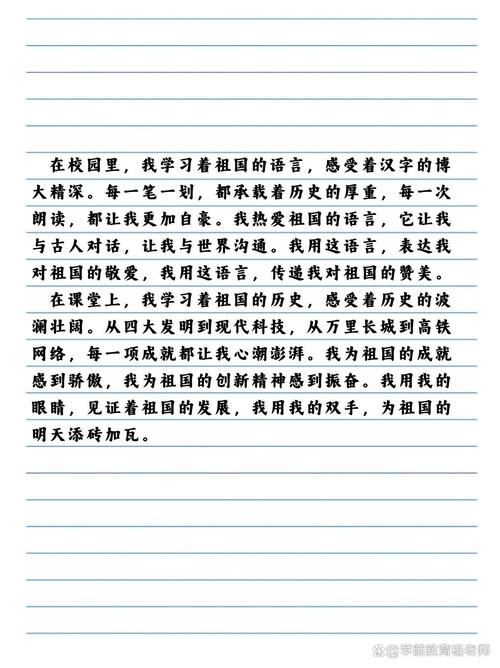 在校园里，我学习着祖国的语言，感受着汉字的博
大精深。每一笔一划，都承载着历史的厚重，每一次
朗读，都让我更加自豪。我热爱祖国的语言，它让我
与古人对话，让我与世界沟通。我用这语言，表达我
对祖国的敬爱，我用这语言，传递我对祖国的赞美。
在课堂上，我学习着祖国的历史，感受着历史的波
澜壮阔。从四大发明到现代科技，从万里长城到高铁
网络，每一项成就都让我心潮澎湃。我为祖国的成就
感到骄傲，我为祖国的创新精神感到振奋。我用我的
眼睛，见证着祖国的发展，我用我的双手，为祖国的
明天添砖加瓦。
@学前教育杨老师